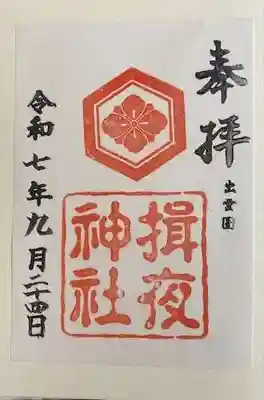 奉拝
出雲國
揖夜
神社
令和七年九月二十四日